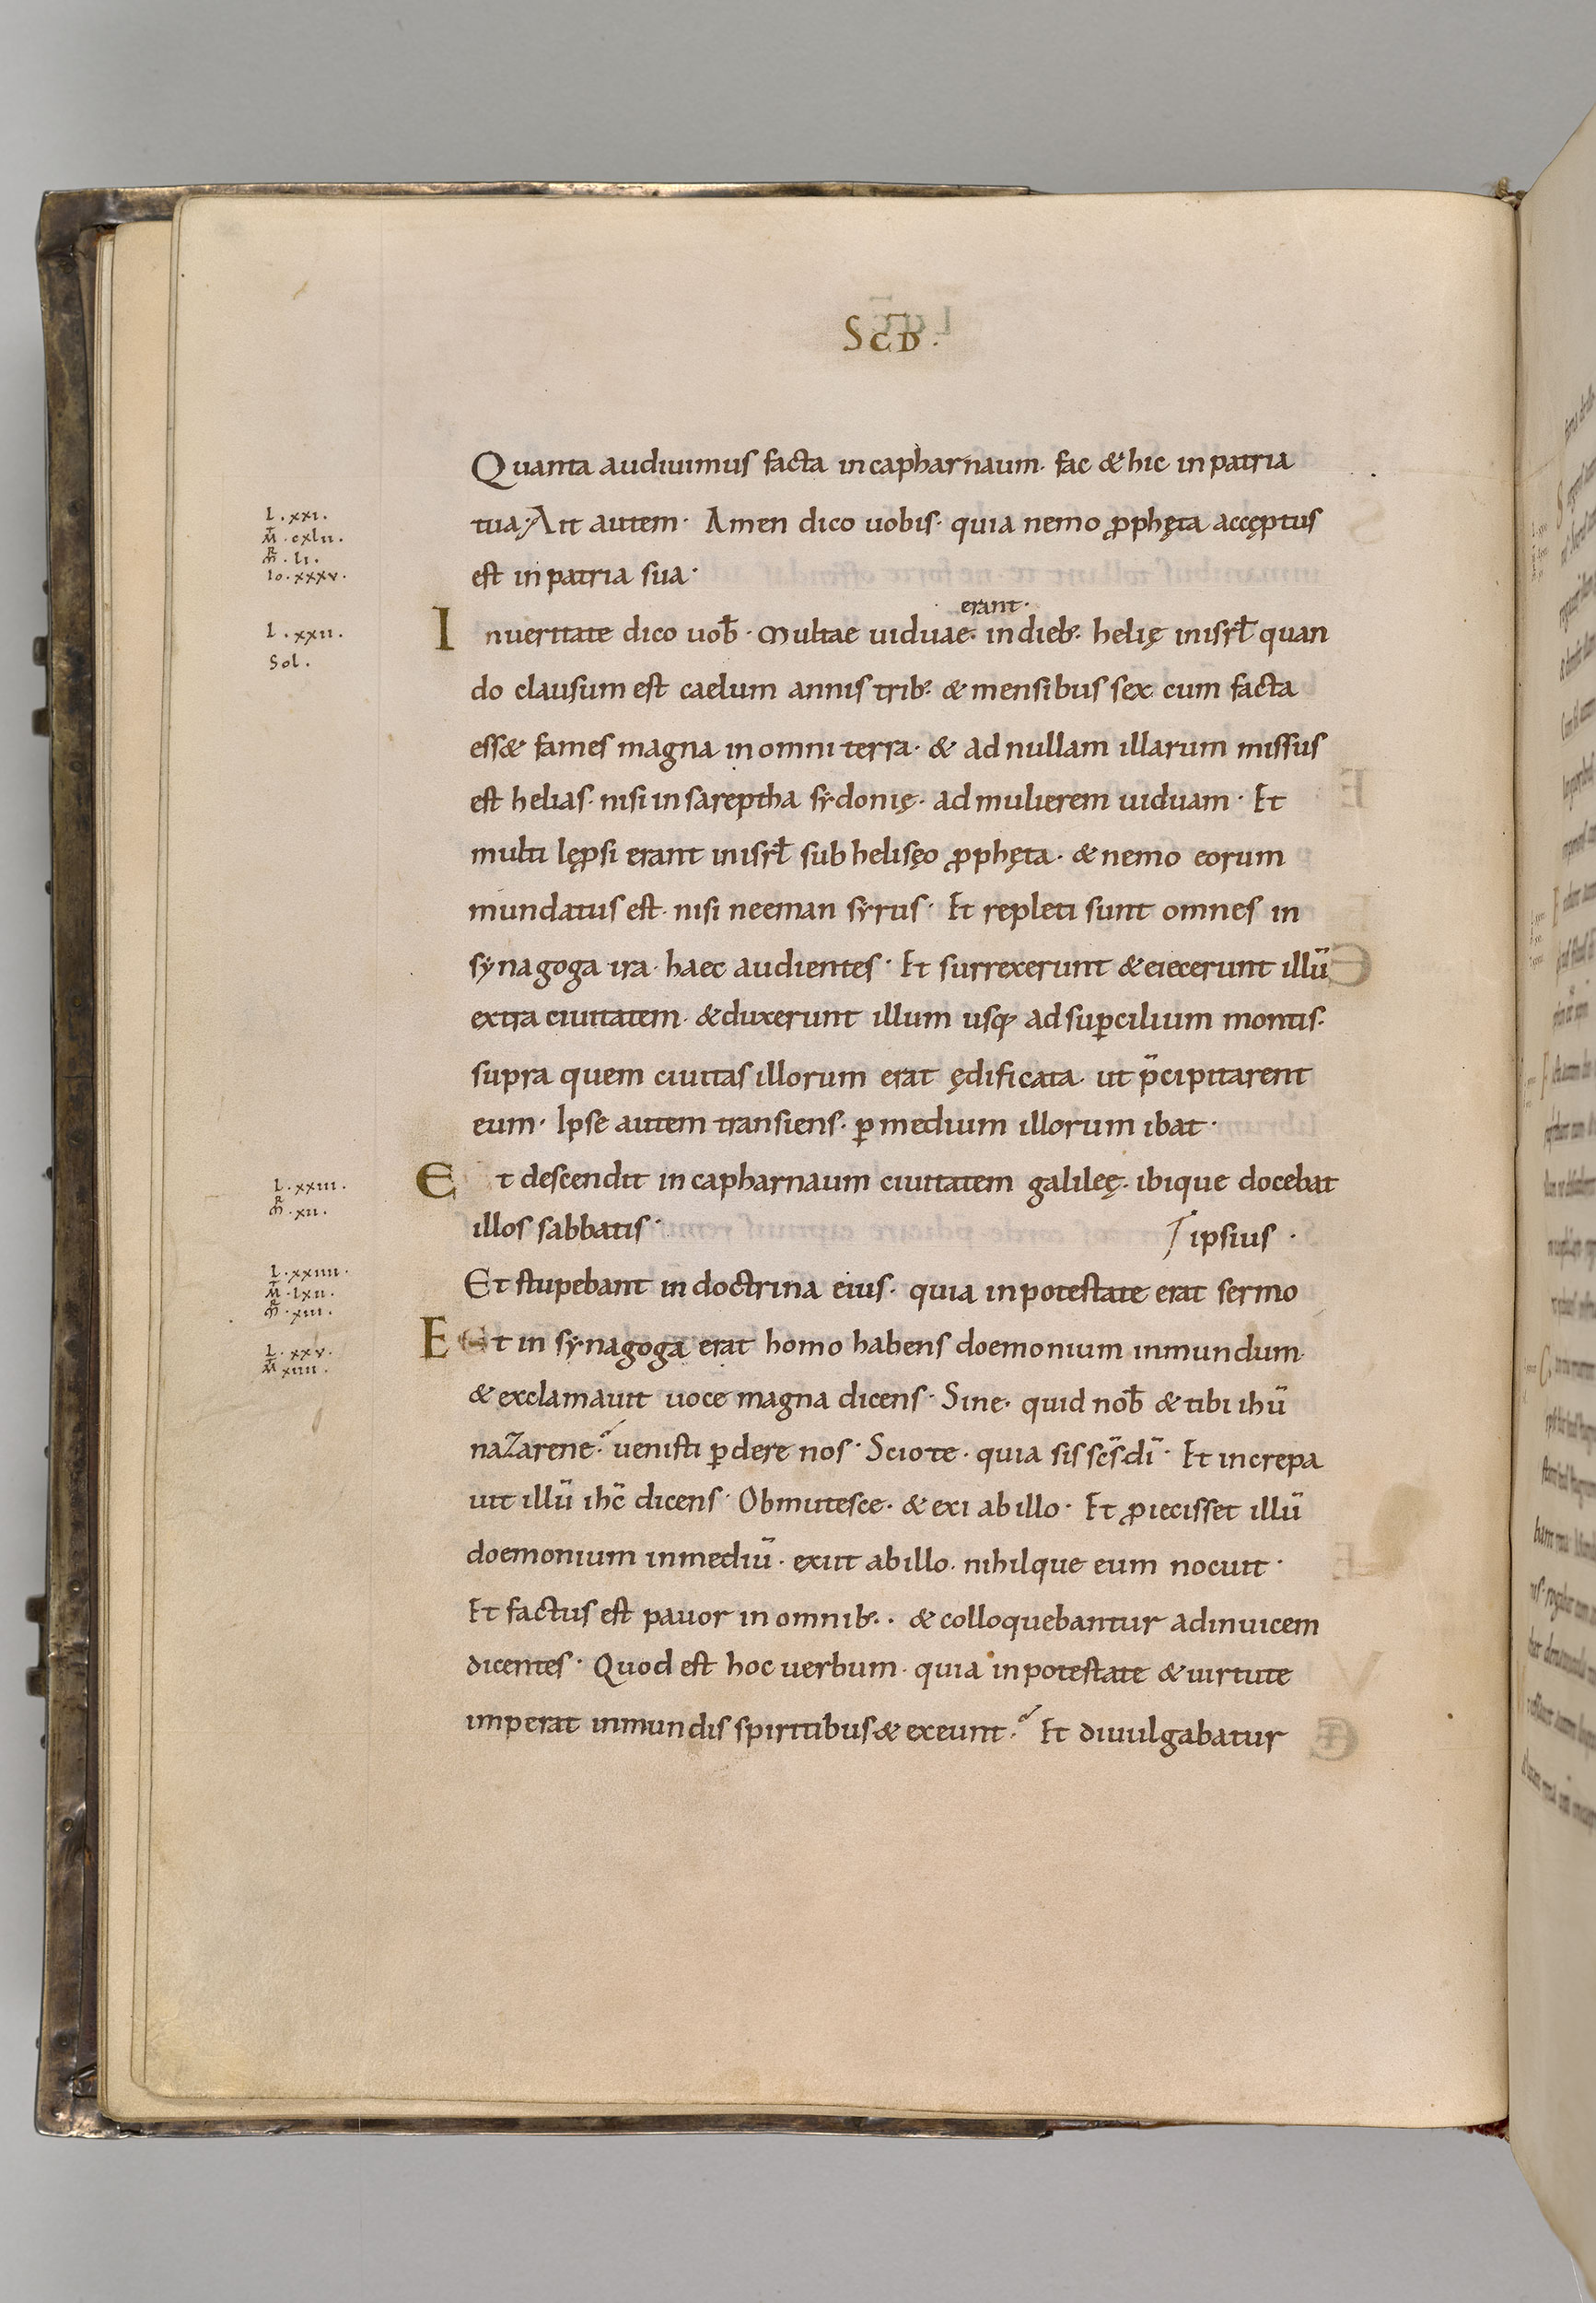 SCD̄.
Quanta audiuimus facta incapharnaum. fac & hic inpatria
L.xxi.
M̄.cxlii.
m̄R.li.
Io.xxxv.
tua. Ait autem. Amen dico uobis. quia nemo ꝓphęta accęptus
est inpatria sua.
erant.
L.xxii.
Sol.
Inueritate dico uob̄. Multae uiduae. indieb;. helię inisrƚ quan
do clausum est caelum annis trib;. & mensibus sex cum facta
ess& fames magna inomni terra. & adnullam illarum missus
est helias. nisi insareptha sẏdonię. admulierem uiduam. Et
multi lęprsi erant inisrƚ sub helisęo ꝓphęta. & nemo eorum
mundatus est. nisi neeman sẏrus. Et repleti sunt omnes in
sẏnagoga ira. haec audientes. Et surrexerunt & eiecerunt illū
extra ciuitatem. & duxerunt illum usq; adsuꝑcilium montis.
supra quem ciuitas illorum erat ędificata. ut p̄cipitarent
eum. Ipse autem transiens. ꝑ medium illorum ibat.
L.xxiii.
m̄R.xii.
Et descendit in capharnaum ciuitatem galileę. ibique docebat
illos sabbatis. ipsius.
L.xxiiii.
M̄.lxii.
m̄R.xiii.
Et stupebant in doctrina eius. quia inpotestate erat sermo
L.xxv.
M̄ xiiii.
E Et in sẏnagoga erat homo habens doemonium inmundum.
& exclamauit uoce magna dicens. Sine. quid nob̄ & tibi ihū
nazarene. uenisti ꝑdere nos. Scio te. quia sis sc̄s dī. Et increpa
uit illū ihc̄ dicens. Obmutesce. & exi abillo. Et ꝓiecisset illū
doemonium inmediū. exiit abillo. nihilque eum nocuit.
Et factus est pauor in omnib;. & colloquebantur adinuicem
dicentes. Quod est hoc uerbum. quia inpotestate & uirtute
imperat inmundis spiritibus & exeunt. Et diuulgabatur